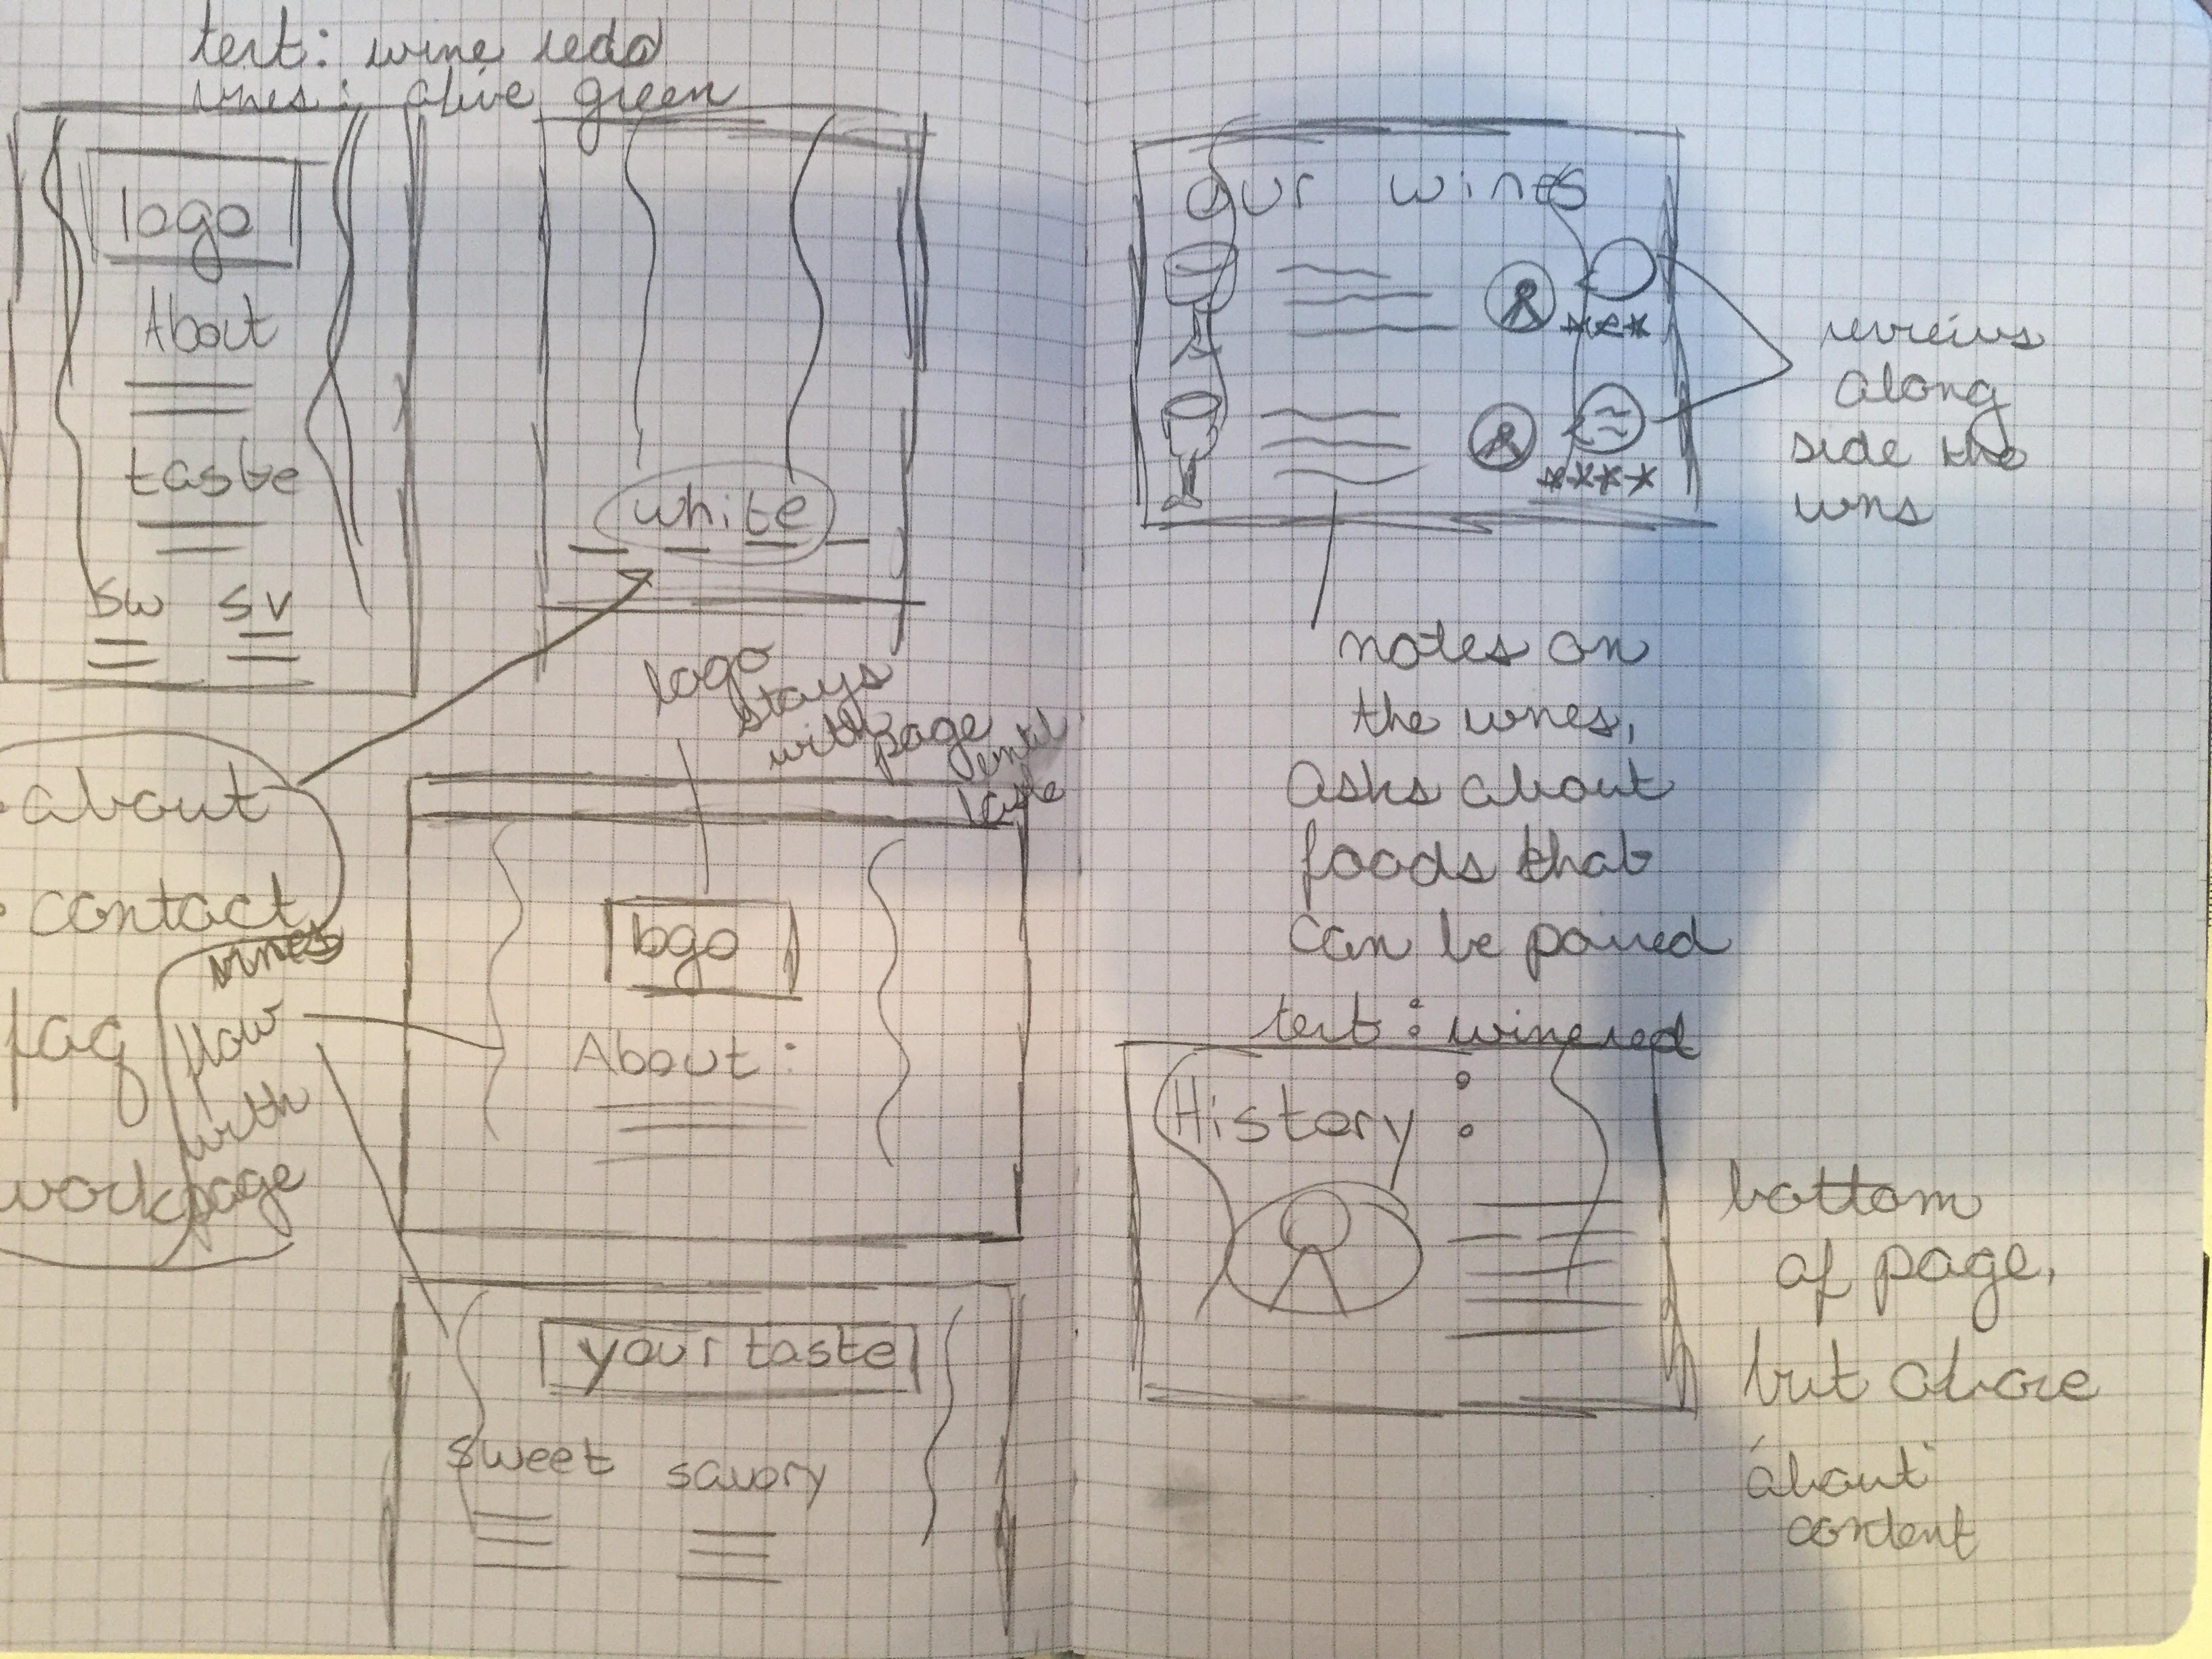 text: wine red
vines: olive green
logo
About
taste
Sw Sv
white
logo
stays
with page
until
taste
about
contact
faq
work
vines
flow
with
page
logo
About:
your taste
Sweet savory
Our wines
*** 
****
reviews
along
side the
wns
notes on
the wnes,
asks about
foods that
can be paired
text: wine red
History:
bottom
of page,
but above
"about"
content